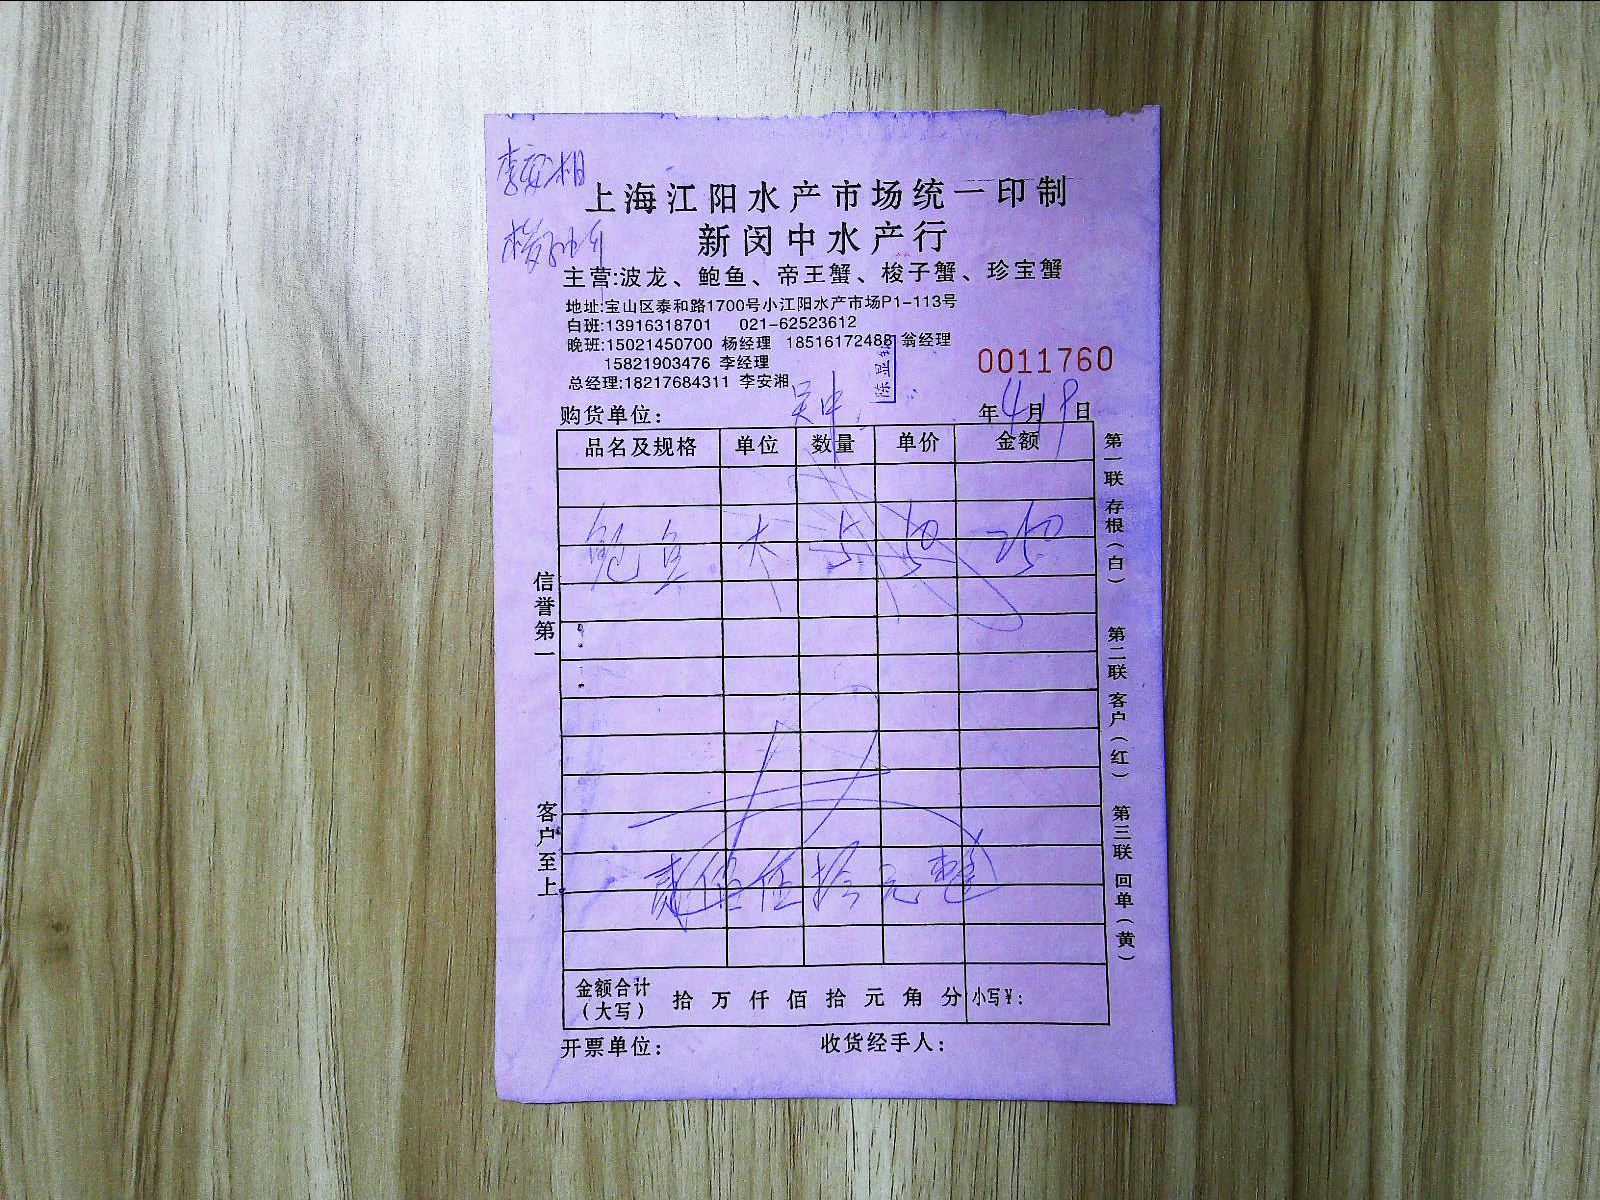 李安湘
上海江阳水产市场统一印制
新闵中水产行
主营:波龙、鲍鱼、帝王蟹、梭子蟹、珍宝蟹
地址:宝山区泰和路1700号小江阳水产市场P1-113号
白班:13916318701 021-62523612
晚班:15021450700 杨经理 18516172488 翁经理
15821903476 李经理
总经理:18217684311 李安湘
陈显
0011760
购货单位: 吴中 年4月19日
品名及规格 单位 数量 单价 金额
鲍鱼 大 5 50 250
贰佰伍拾元整
金额合计(大写) 拾 万 仟 佰 拾 元 角 分 小写¥:
开票单位: 收货经手人:
信誉第一
客户至上
第一联 存根(白)
第二联 客户(红)
第三联 回单(黄)